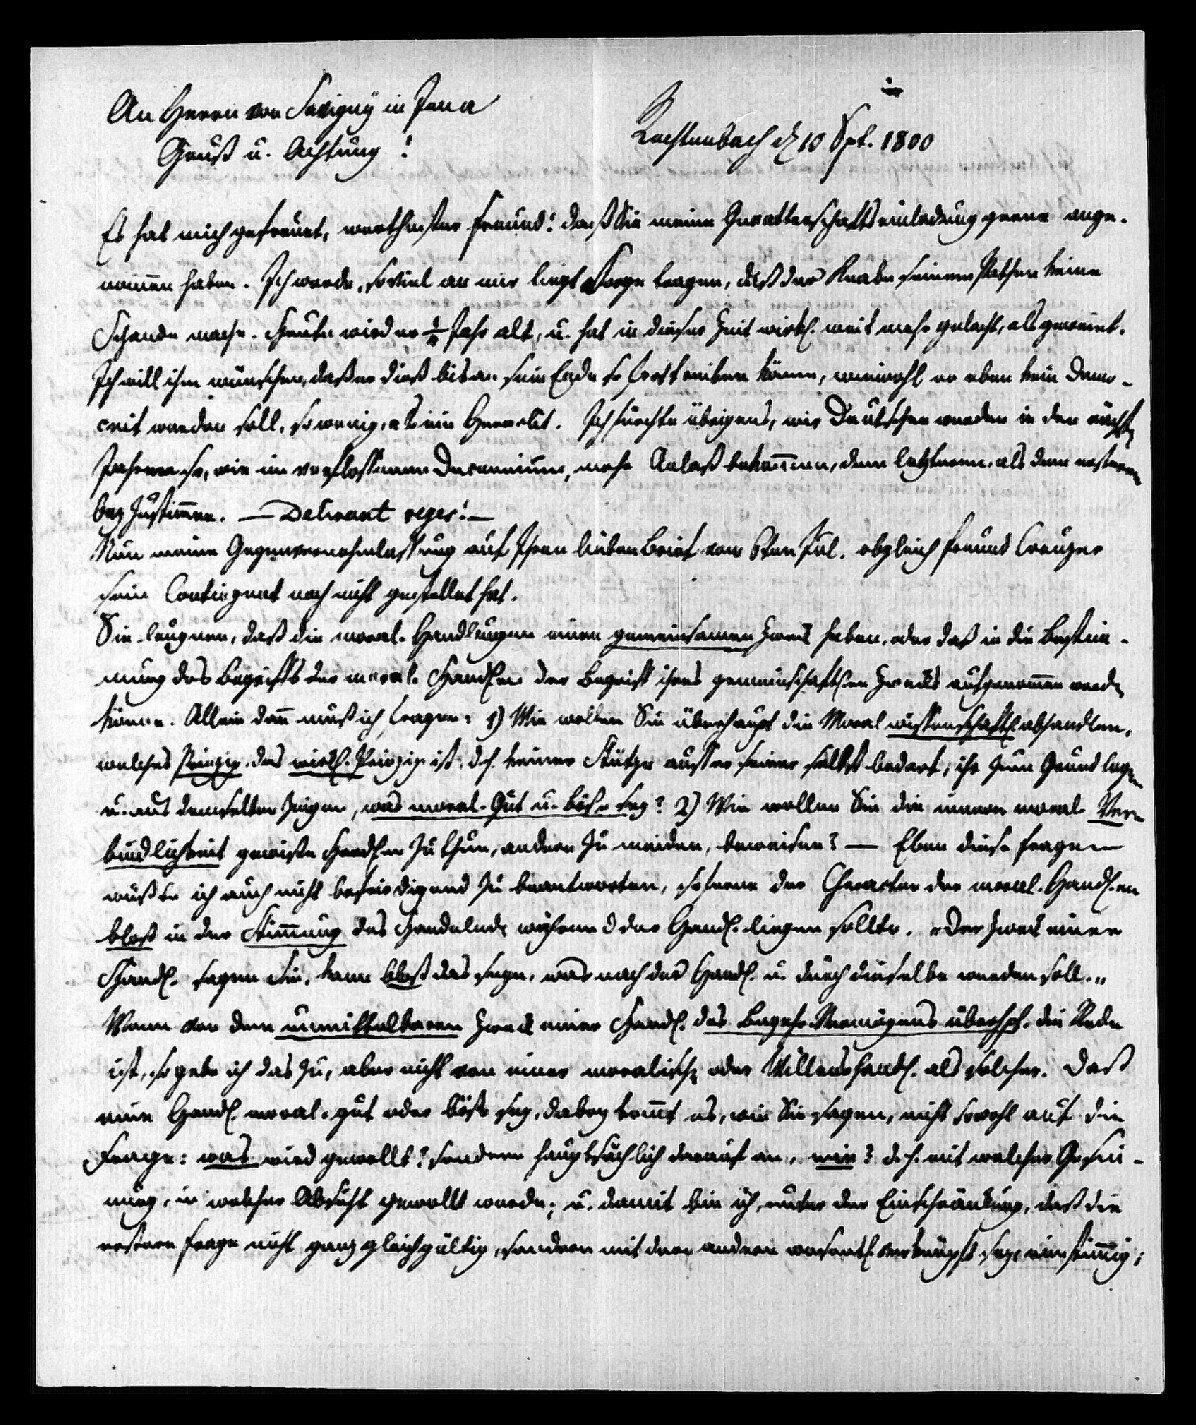 An Herrn von Savigny in Jena
Gruß u. Achtung!
Rechtenbach d 10 Spt. 1800
Es hat mich gefreuet, werthester Freund! daß Sie meine Gevatterschaftseinladung gerne ange-
nommen haben. Ich werde, soviel an mir liegt Sorge tragen, daß der Knabe seinem Pathen keine
Schande mache. Heute wird er 1/4 Jahr alt, u. hat in dieser Zeit wirkl. weit mehr gelacht, als geweint.
Ich will ihm wünschen, daß er dieß bis an sein Ende so forttreiben könne, wiewohl er eben kein Demo-
crit werden soll, so wenig, als ein Heraclit. Ich fürchte übrigens, wir Deutschen werden in den nächsten
Jahren so, wie im verflossenen Decennium, mehr Anlaß bekommen, dem letzteren, als dem ersteren
beyzustimmen. — Delirant reges! —
Nun meine Gegenvernehmlassung auf Ihren lieben Brief vom 6ten Jul. obgleich Freund Creuzer
sein Contingent noch nicht gestellet hat.
Sie leugnen, daß die moral. Handlungen einen gemeinsamen Zweck haben, oder daß in die Bestim-
mung des Begriffs der moral. Handl.en der Begriff ihres gemeinschaftl.en Zwecks aufgenommen werden
könne. Allein dann muß ich fragen: 1) Wie wollen Sie überhaupt die Moral wissenschaftl. abhandlen,
welches Prinzip, das wirkl. Prinzip ist, d.h. keiner Stütze ausser seiner selbst bedarf, ihr zum Grund legen
u. aus demselben zeigen, was moral. Gut u. böse sey? 2) Wie wollen Sie die innere moral. Ver-
bindlichkeit gewisse Handl.en zu thun, andere zu meiden, beweisen? — Eben diese Fragen
wüßte ich auch nicht befriedigend zu beantworten, soferne der Character der moral. Handl.en
bloß in der Stimmung des Handelnden während der Handl. liegen sollte. „Der Zweck einer
Handl. sagen Sie, kann bloß das seyn, was nach der Handl. u. durch dieselbe werden soll.„
Wenn von dem unmittelbaren Zweck einer Handl. des Begehr-Vermögens überhpt. die Rede
ist, so gebe ich das zu, aber nicht von einer moralischen oder Willenshandl. als solcher. Daß
eine Handl. moral. gut oder böse sey, dabey kommt es, wie Sie sagen, nicht sowohl auf die
Frage: was wird gewollt? sondern hauptsächlich darauf an, wie? d.h. mit welcher Gesin-
nung, in welcher Absicht gewollt werde; u. damit bin ich, unter der Einschränkung, daß die
erstere Frage nicht ganz gleichgültig, sondern mit der andern wesentl. verknüpft sey, einstimmig;